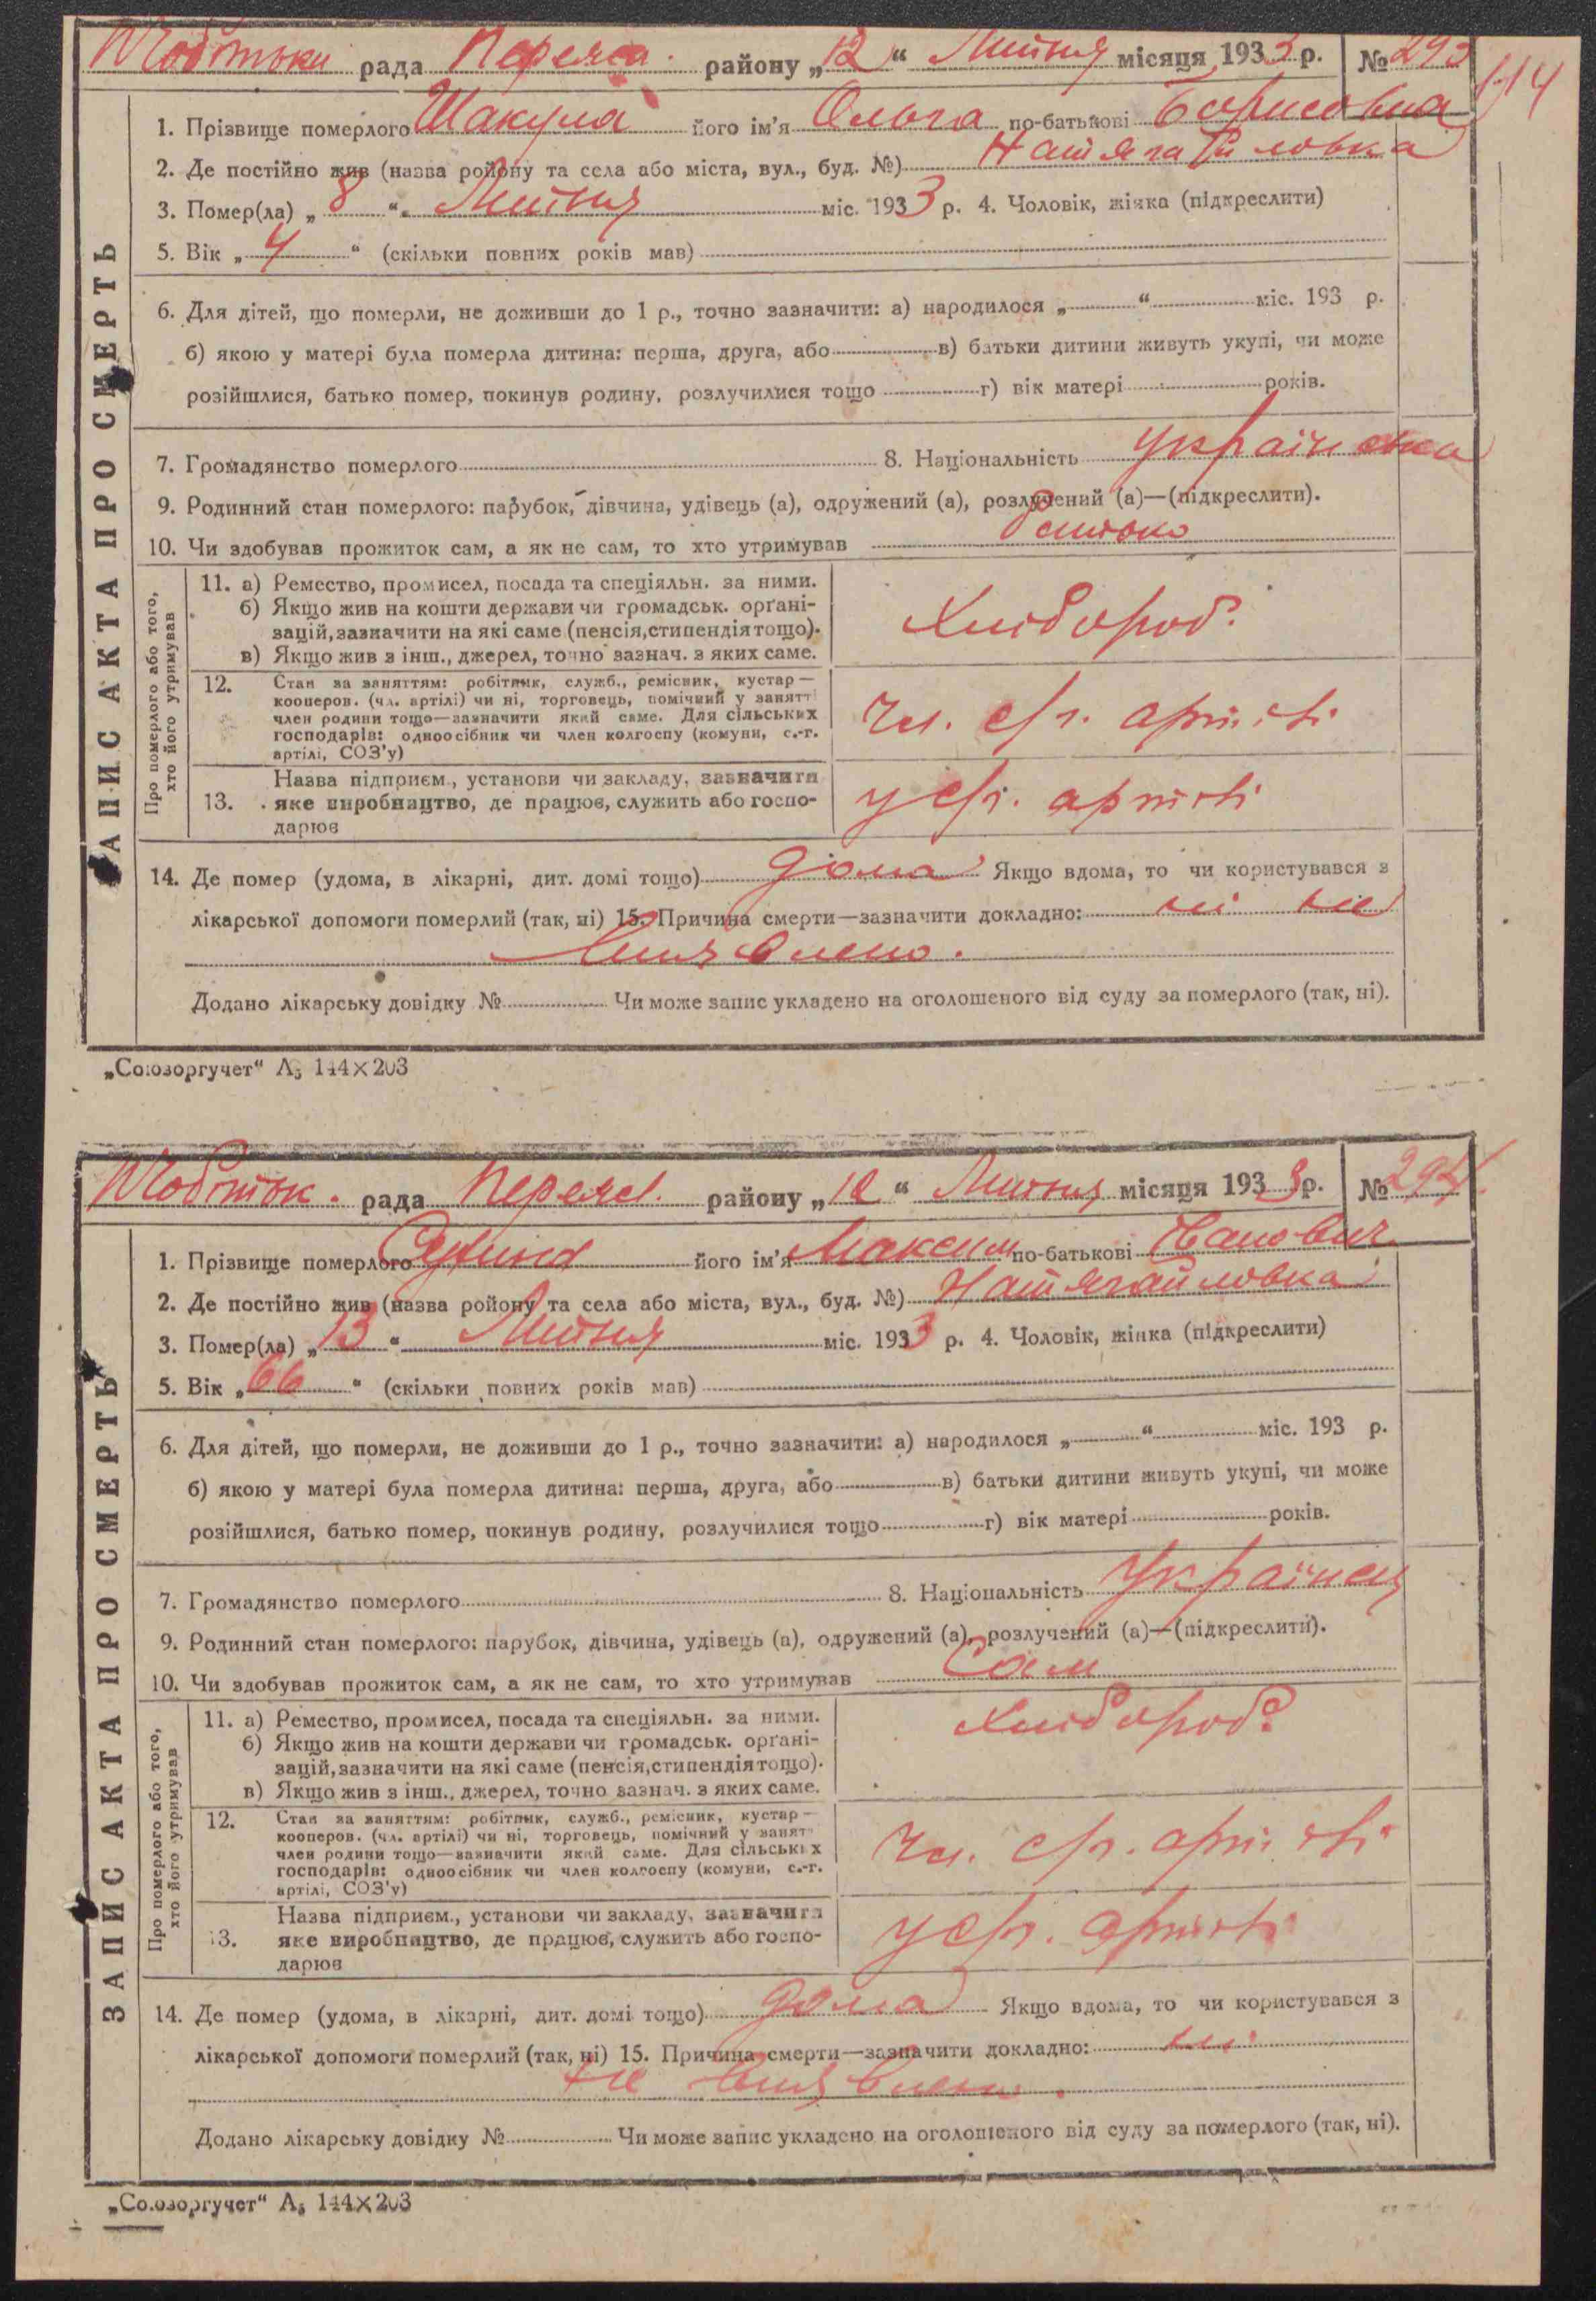 рада Переясл. району „12“ Липня місяця 1933 р. № 293
114
1. Прізвище померлого Шакула його ім'я Ольга по-батькові Борисовна
2. Де постійно жив (назва ройону та села або міста, вул., буд. №) Натягайловка
3. Помер(ла) „8“ Липня міс. 1933 р. 4. Чоловік, жінка (підкреслити)
5. Вік „4“ (скільки повних років мав)
6. Для дітей, що померли, не доживши до 1 р., точно зазначити: а) народилося „ “ міс. 193 р.
б) якою у матері була померла дитина: перша, друга, або в) батьки дитини живуть укупі, чи може
розійшлися, батько помер, покинув родину, розлучилися тощо г) вік матері років.
7. Громадянство померлого 8. Національність українка
9. Родинний стан померлого: парубок, дівчина, удівець (а), одружений (а), розлучений (а)—(підкреслити).
10. Чи здобував прожиток сам, а як не сам, то хто утримував батько
ЗАПИС АКТА ПРО СМЕРТЬ
Про померлого або того,
хто його утримував
11. а) Ремество, промисел, посада та спеціяльн. за ними.
б) Якщо жив на кошти держави чи громадськ. орґані-
зацій, зазначити на які саме (пенсія, стипендія тощо).
в) Якщо жив з інш., джерел, точно зазнач. з яких саме.
Хлібороб.
12. Стан за заняттям: робітник, служб., ремісник, кустар—
кооперов. (чл. артілі) чи ні, торговець, помічний у занятт
член родини тощо—зазначити який саме. Для сільських
господарів: одноосібник чи член колгоспу (комуни, с.-г.
артілі, СОЗ'у)
Чл. с/г. артілі
13. Назва підприєм., установи чи закладу, зазначити
яке виробництво, де працює, служить або госпо-
дарює
у с/г. артілі
14. Де помер (удома, в лікарні, дит. домі тощо) дома Якщо вдома, то чи користувався з
лікарської допомоги померлий (так, ні) 15. Причина смерти—зазначити докладно: ні не
виявлено.
Додано лікарську довідку № Чи може запис укладено на оголошеного від суду за померлого (так, ні).
„Союзоргучет“ А5 144×203
рада Переясл. району „12“ Липня місяця 1933 р. № 294
1. Прізвище померлого його ім'я Максим по-батькові Іванович
2. Де постійно жив (назва ройону та села або міста, вул., буд. №) Натягайловка
3. Помер(ла) „13“ Липня міс. 1933 р. 4. Чоловік, жінка (підкреслити)
5. Вік „66“ (скільки повних років мав)
6. Для дітей, що померли, не доживши до 1 р., точно зазначити: а) народилося „ “ міс. 193 р.
б) якою у матері була померла дитина: перша, друга, або в) батьки дитини живуть укупі, чи може
розійшлися, батько помер, покинув родину, розлучилися тощо г) вік матері років.
7. Громадянство померлого 8. Національність Українец
9. Родинний стан померлого: парубок, дівчина, удівець (а), одружений (а), розлучений (а)—(підкреслити).
10. Чи здобував прожиток сам, а як не сам, то хто утримував Сам
ЗАПИС АКТА ПРО СМЕРТЬ
Про померлого або того,
хто його утримував
11. а) Ремество, промисел, посада та спеціяльн. за ними.
б) Якщо жив на кошти держави чи громадськ. орґані-
зацій, зазначити на які саме (пенсія, стипендія тощо).
в) Якщо жив з інш., джерел, точно зазнач. з яких саме.
Хлібороб
12. Стан за заняттям: робітник, служб., ремісник, кустар—
кооперов. (чл. артілі) чи ні, торговець, помічний у занятт
член родини тощо—зазначити який саме. Для сільських
господарів: одноосібник чи член колгоспу (комуни, с.-г.
артілі, СОЗ'у)
Чл. с/г. артілі
13. Назва підприєм., установи чи закладу, зазначити
яке виробництво, де працює, служить або госпо-
дарює
у с/г. артілі
14. Де помер (удома, в лікарні, дит. домі тощо) дома Якщо вдома, то чи користувався з
лікарської допомоги померлий (так, ні) 15. Причина смерти—зазначити докладно: ні
не виявлено.
Додано лікарську довідку № Чи може запис укладено на оголошеного від суду за померлого (так, ні).
„Союзоргучет“ А5 144×203